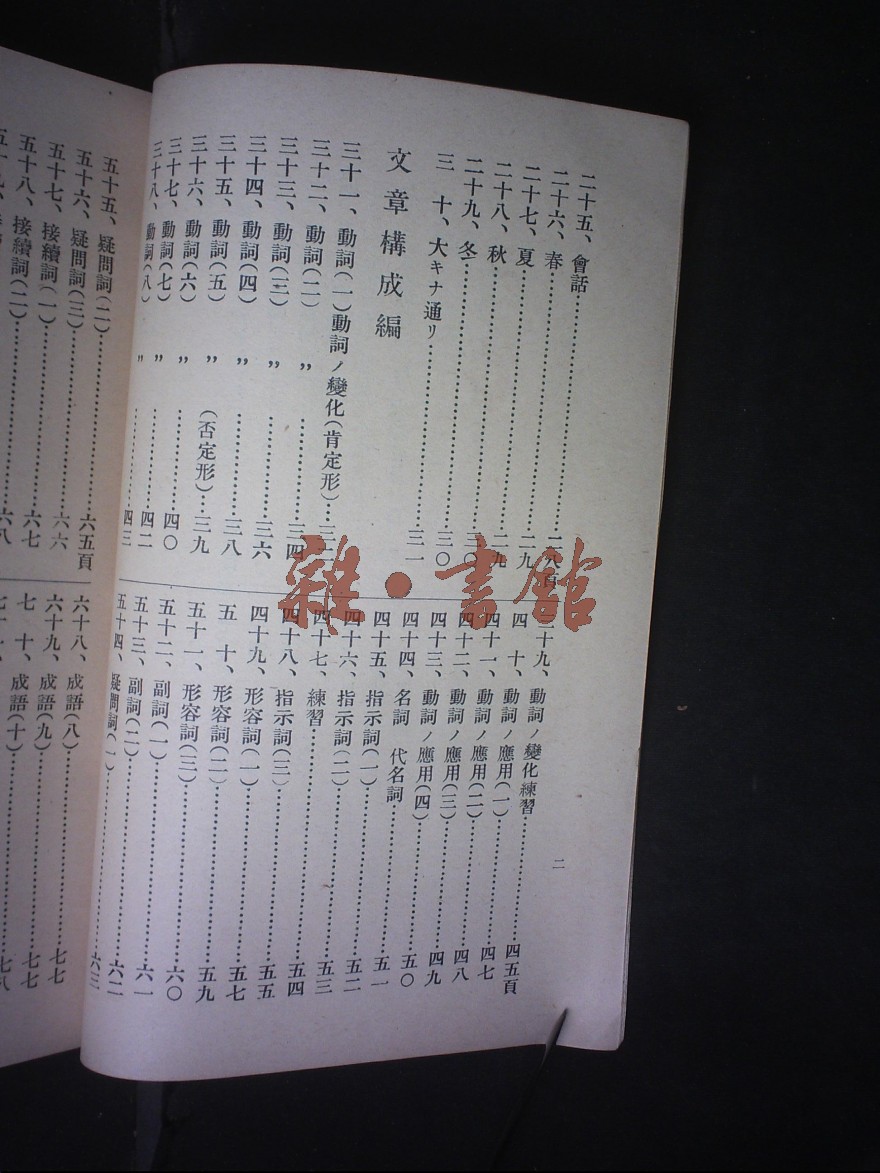 二十五、會話……二八頁
二十六、春……二九
二十七、夏……二九
二十八、秋……二九
二十九、冬……三〇
三十、大キナ通リ……三一
文章構成編
三十一、動詞(一)動詞ノ變化(肯定形)…三二
三十二、動詞(二)〃……三四
三十三、動詞(三)〃……三六
三十四、動詞(四)〃……三八
三十五、動詞(五)〃(否定形)…三九
三十六、動詞(六)〃……四〇
三十七、動詞(七)〃……四二
三十八、動詞(八)〃……四三
三十九、動詞ノ變化練習……四五頁
四十、動詞ノ應用(一)……四七
四十一、動詞ノ應用(二)……四八
四十二、動詞ノ應用(三)……四九
四十三、動詞ノ應用(四)
四十四、名詞 代名詞……五〇
四十五、指示詞(一)……五一
四十六、指示詞(二)……五二
四十七、練習……五三
四十八、指示詞(三)……五四
四十九、形容詞(一)……五五
五十、形容詞(二)……五七
五十一、形容詞(三)……五九
五十二、副詞(一)……六〇
五十三、副詞(二)……六一
五十四、疑問詞(一)……六二
六三
二
五十五、疑問詞(二)……六五頁
五十六、疑問詞(三)……六六
五十七、接續詞(一)……六七
五十八、接續詞(二)……六八
六十八、成語(八)……七七
六十九、成語(九)……七七
七十、成語(十)……七八
雜·書館